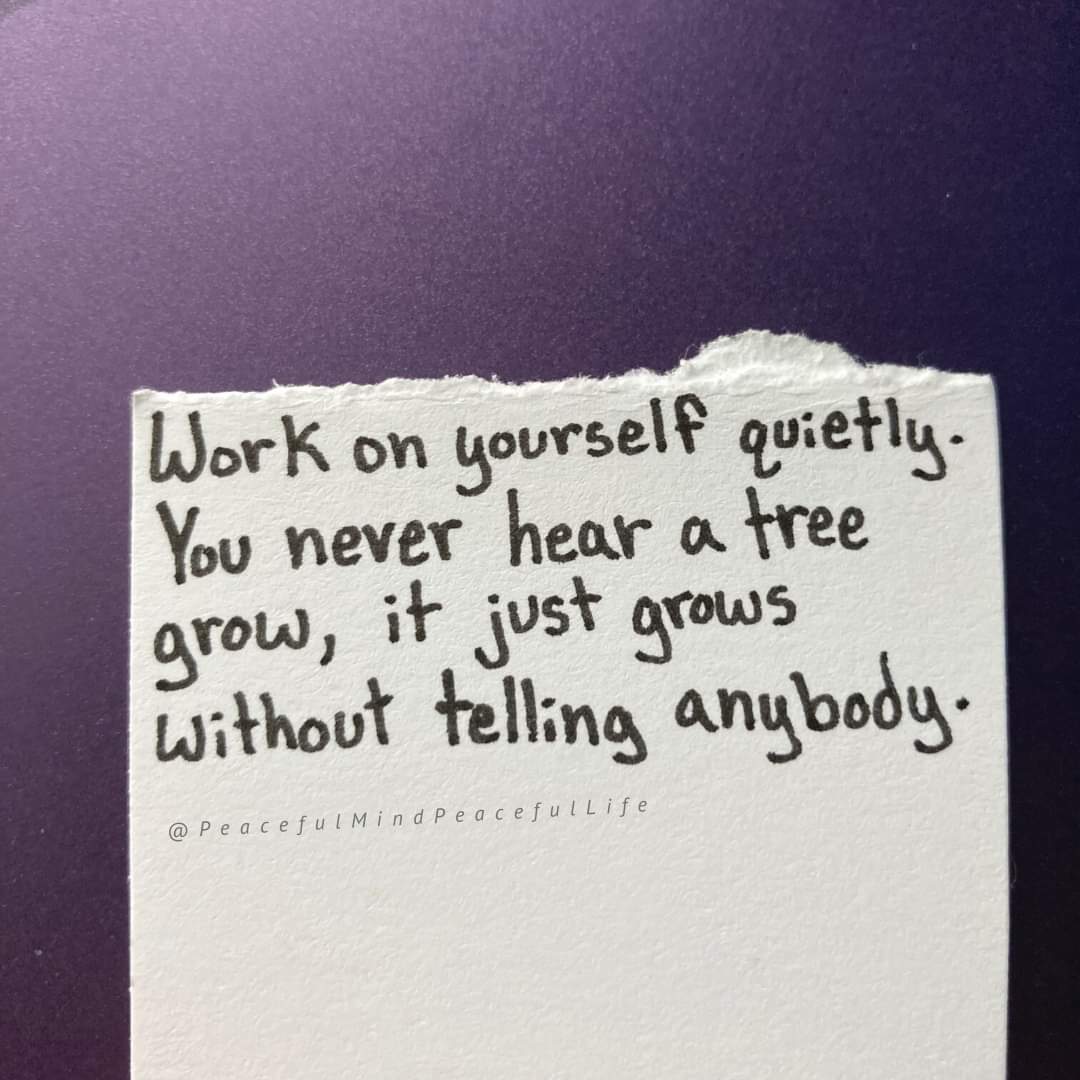 Work on yourself quietly.
You never hear a tree
grow, it just grows
without telling anybody.
@PeacefulMindPeacefulLife